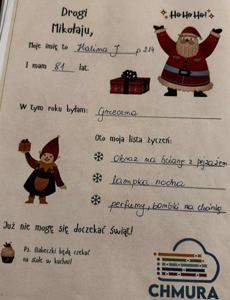 Drogi
Mikołaju,
HoHoHo!
Moje imię to Halina J p 214
I mam 81 lat.
W tym roku byłam: Grzeczna
Oto moja lista życzeń:
Obraz na ścianę z pejzażem
lampka nocna
perfumy, bombki na choinkę
Już nie mogę się doczekać świąt!
Ps. Babeczki będą czekać
na stole w kuchni!
CHMURA